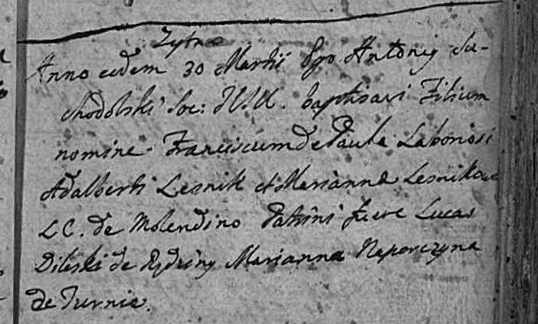 Zytno
Anno eodem 30 Martii Ego Antoni Su-
chodolski Soc: JESU. baptisavi Filium
nomine Franciscum de Paula Laboriosi
Adalberti Lesnik et Marianna Lesnikowa
LC. de Molendino Patrini fuere Lucas
de Marianna
de Turnie.